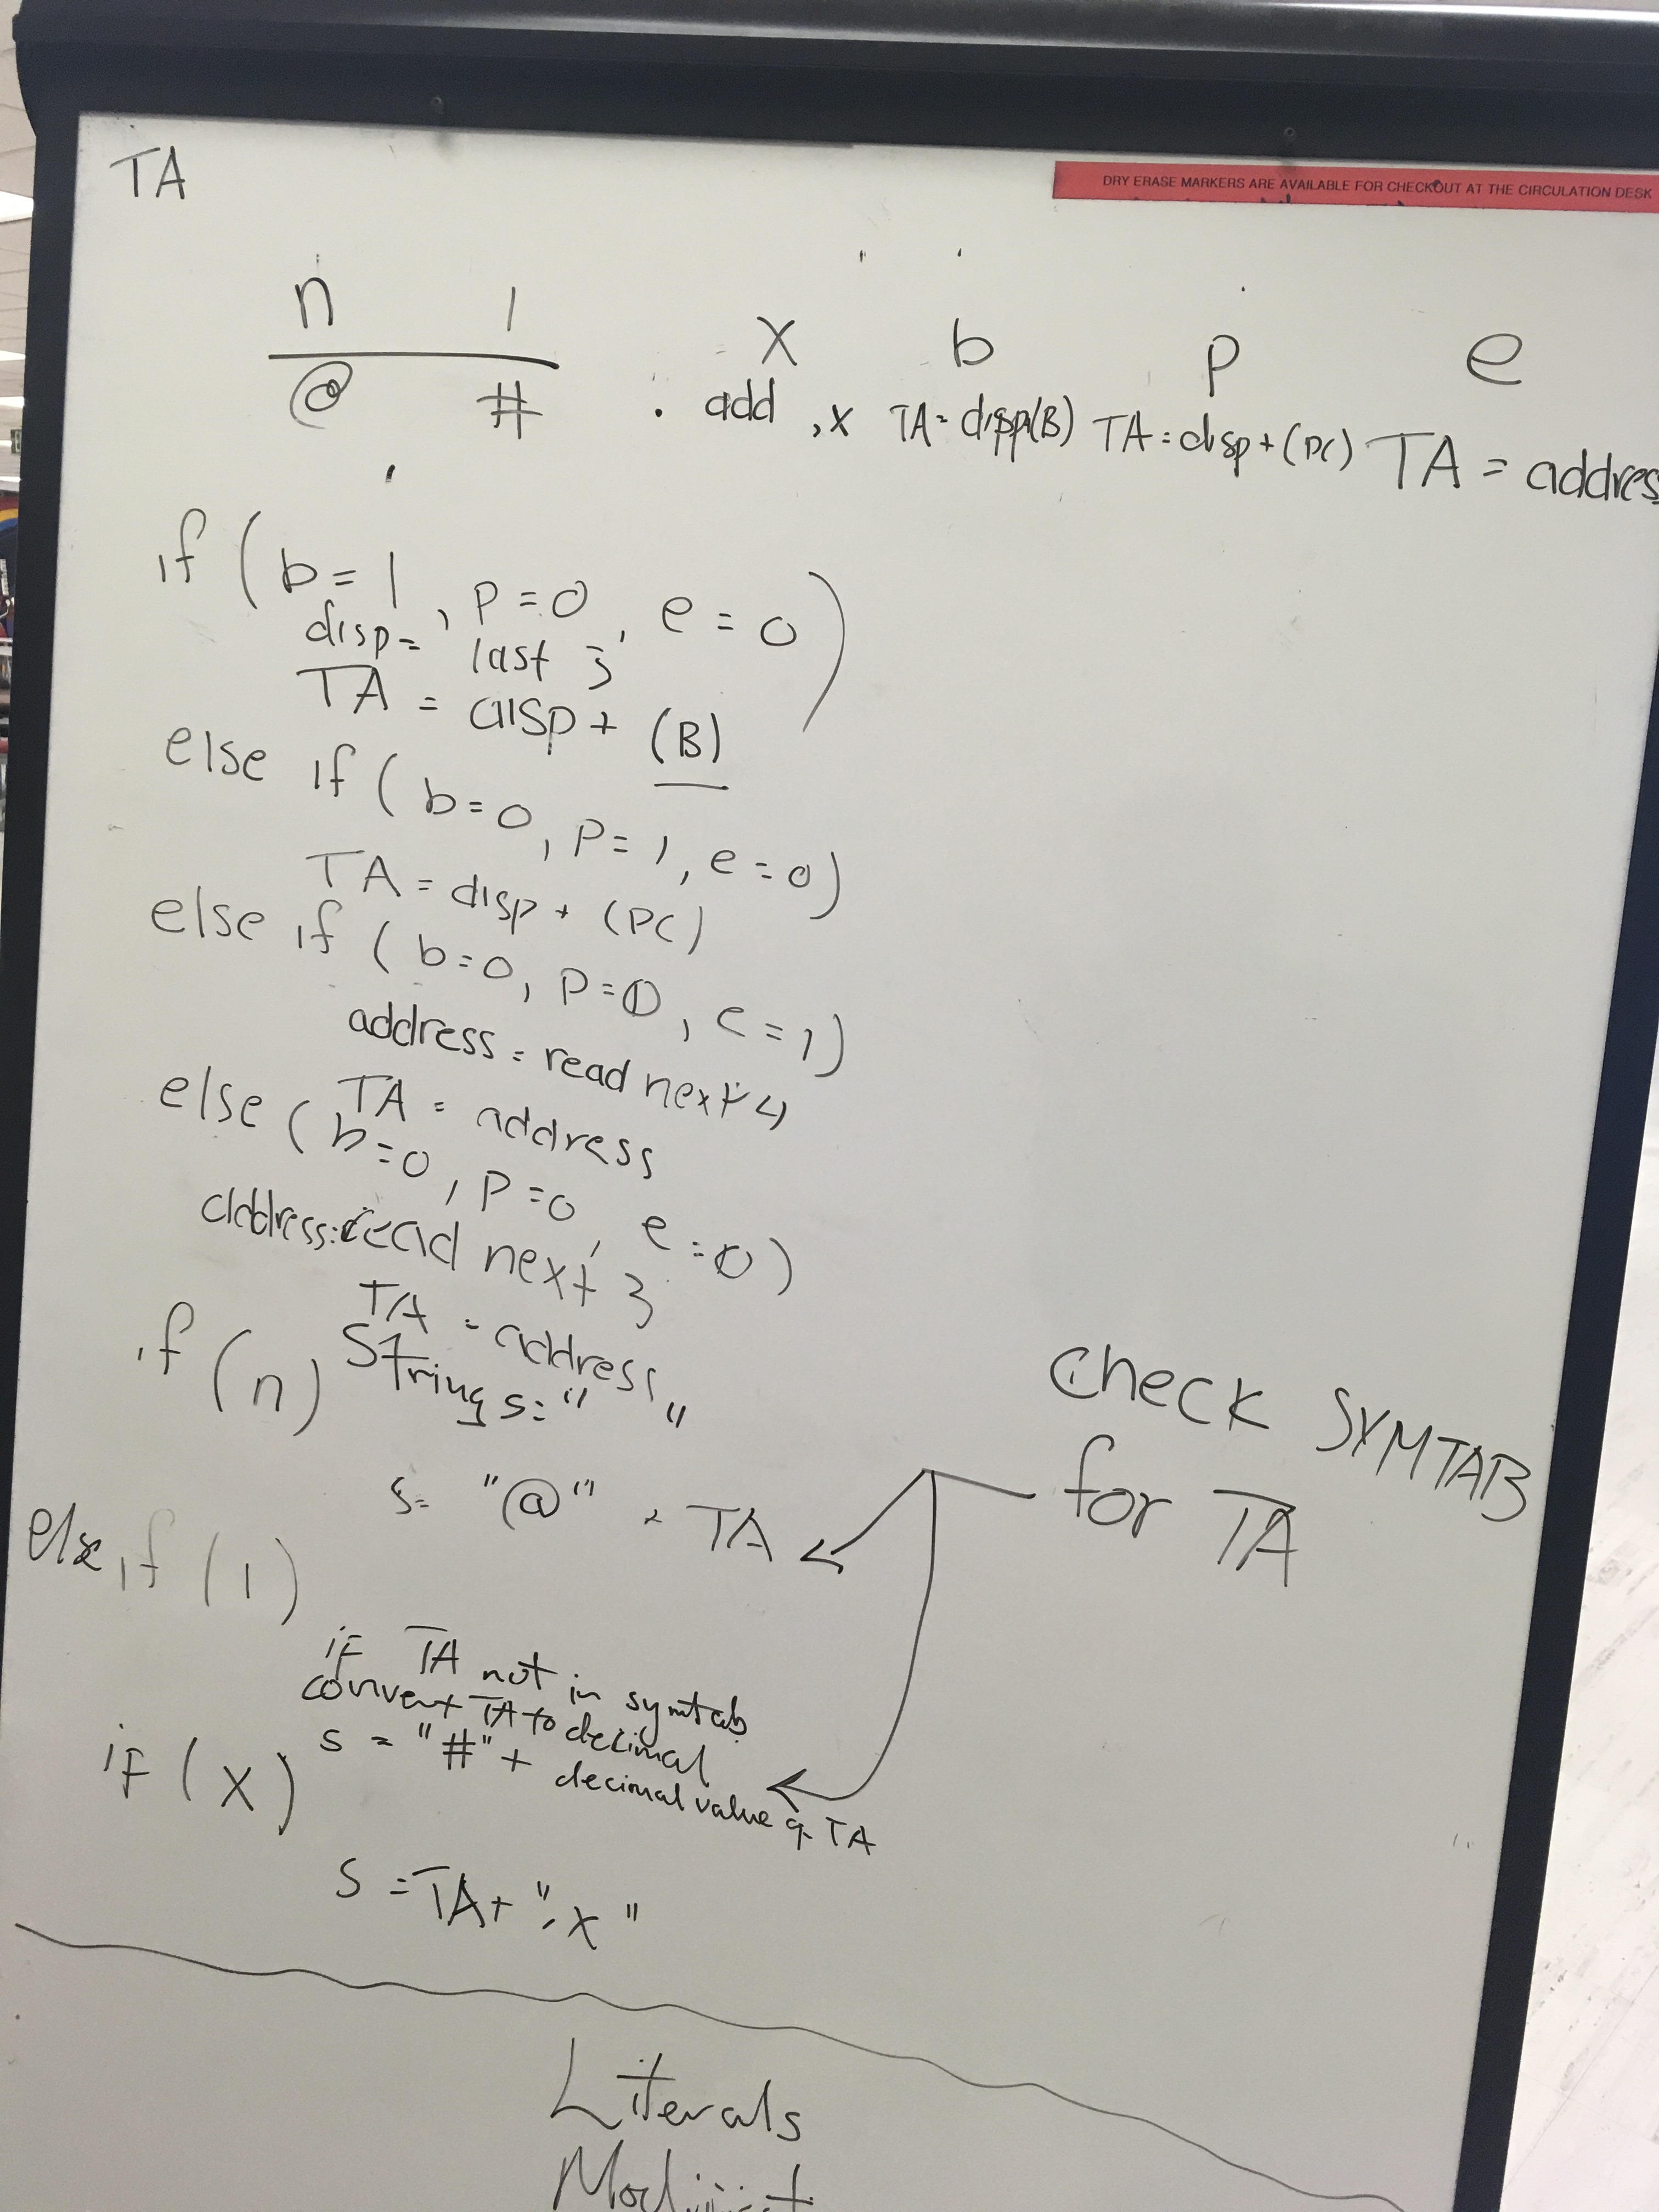 TA
DRY ERASE MARKERS ARE AVAILABLE FOR CHECKOUT AT THE CIRCULATION DESK
n i x b p e
@ # add ,x TA= disp(B) TA = disp + (PC) TA = addres
if (b=1, p=0, e=0)
disp= last 3
TA = disp + (B)
else if (b=0, p=1, e=0)
TA = disp + (PC)
else if (b=0, p=0, e=1)
address = read next 4
TA = address
else (b=0, p=0, e=0)
address = read next 3
TA = address
if (n) String s= " "
s= "@" + TA
else if (i)
if TA not in symtab
convert TA to decimal
s = "#" + decimal value of TA
if (x)
s = TA + ",x"
Check SYMTAB
for TA
Literals